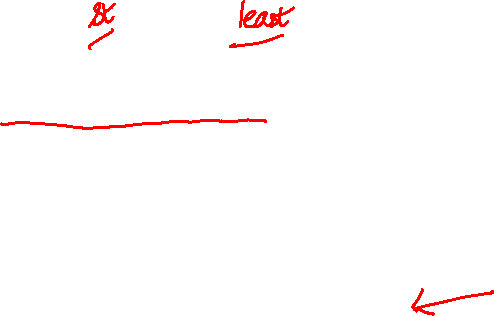 st least